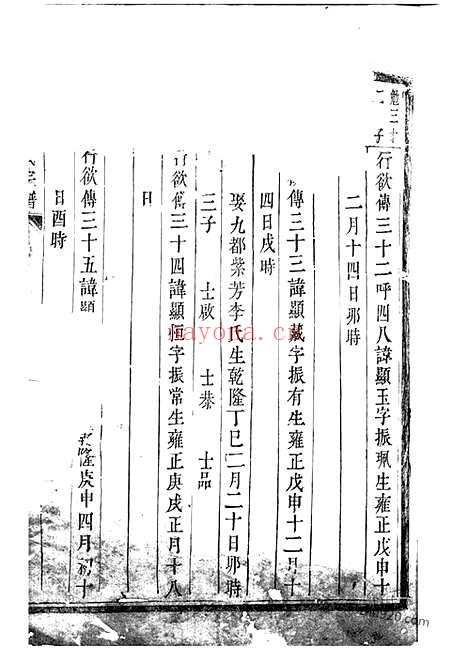 勉三十
二子
行欲傳三十二呼四八諱顯玉字振珮生雍正戊申十
二月十四日卯時
傳三十三諱顯戴字振有生雍正戊申十二月十
四日戌時
娶九都紫芳李氏生乾隆丁巳二月二十日卯時
三子 士啟 士恭 士品
行欲傳三十四諱顯恒字振常生雍正庚戌正月十八
日
行欲傳三十五諱顯
乾隆庚申四月初十
日酉時
宗譜
nayona.cn